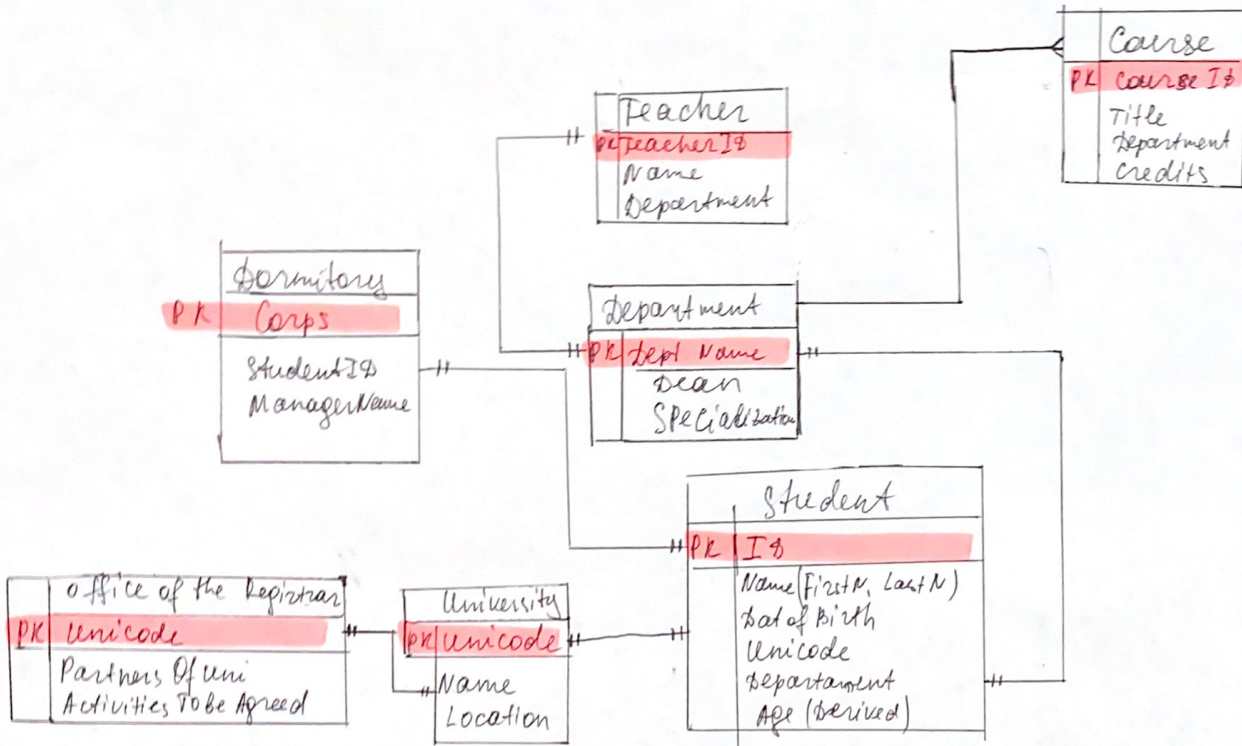 Course
PK Course ID
Title
Department
Credits
Teacher
PK TeacherID
Name
Department
Dormitory
PK Corps
StudentID
ManagerName
Department
PK Dept Name
Dean
Specialization
Student
PK ID
Name (FirstN, LastN)
Dat of Birth
Unicode
Departament
Age (Derived)
Office of the Registrar
PK Unicode
Partners Of Uni
Activities To be Agreed
University
PK Unicode
Name
Location